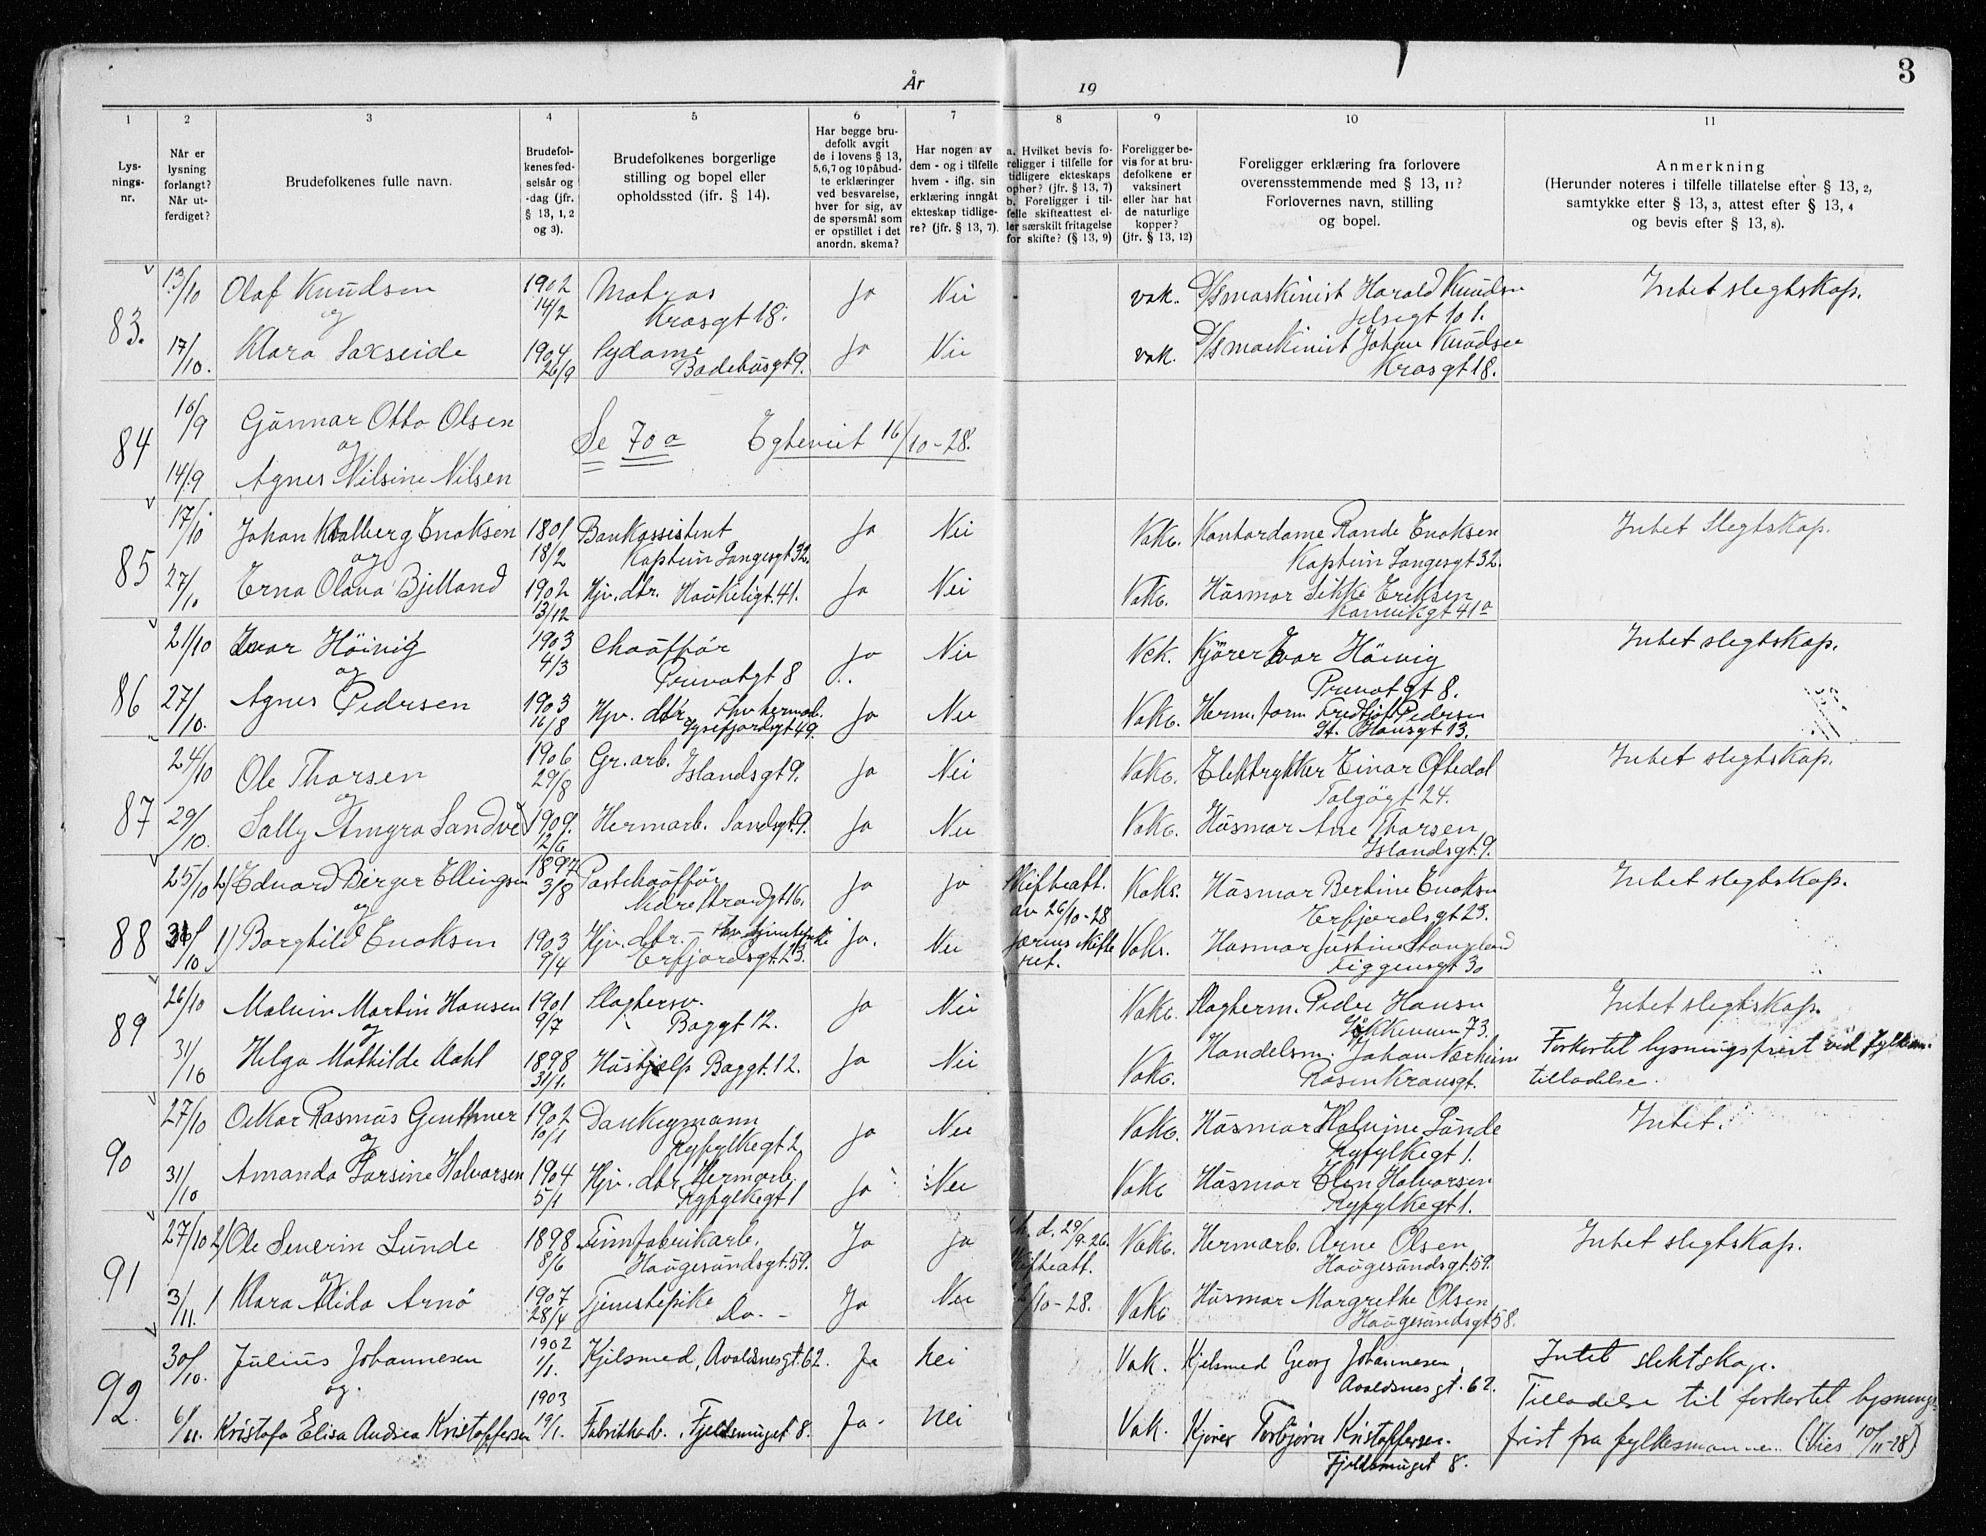 År 19
3
1
2
3
4
5
6
7
8
9
10
11
Lys-
nings-
nr.
Når er
lysning
forlangt?
Når ut-
ferdiget?
Brudefolkenes fulle navn.
Brudefol-
kenes fød-
selsår og
-dag (jfr.
§ 13, 1, 2
og 3).
Brudefolkenes borgerlige
stilling og bopel eller
opholdssted (ifr. § 14).
Har begge bru-
defolk avgit
de i lovens § 13,
5,6,7 og 10 påbud-
te erklæringer
ved besvarelse,
hver for sig, av
de spørsmål som
er opstillet i det
anordn. skema?
Har nogen av
dem - og i tilfelle
hvem - iflg. sin
erklæring inngåt
ekteskap tidlige-
re? (jfr. § 13, 7).
a. Hvilket bevis fo-
religger i tilfelle for
tidligere ekteskaps
ophør? (jfr. § 13, 7)
b. Foreligger i til-
felle skifteattest el-
ler særskilt fritagelse
for skifte? (§ 13, 9)
Foreligger be-
vis for at bru-
defolkene er
vaksinert
eller har hat
de naturlige
kopper?
(jfr. § 13, 12)
Foreligger erklæring fra forlovere
overensstemmende med § 13, 11?
Forlovernes navn, stilling
og bopel.
Anmerkning
(Herunder noteres i tilfelle tillatelse efter § 13, 2,
samtykke efter § 13, 3, attest efter § 13, 4
og bevis efter § 13, 8).
83.
13/10 Olaf Knudsen 1902 14/2 Matros Krosgt 18. Ja Nei vak. D/S maskinist Harald Knudsen Jelsegt 101. Intet slegtskap.
og
17/10. Klara Saxseide 1904 26/9 Sydame Badehusgt 9. Ja Nei vak. D/S maskinist Johan Knudsen Krosgt 18.
84
16/9 Gunnar Otto Olsen Se 70 a Egteviet 16/10-28.
og
14/9 Agnes Nilsine Nilsen
85
17/10 Johan Enoksen 1801 18/2 Bankassistent Kaptein Langesgt 32. Ja Nei Vakc. Kontordame Rande Enoksen Kaptein Langesgt 32. Intet Slegtskap.
og
27/10 Erna Olava Bjelland 1902 13/12 Hjv. dtr. Haukeligt. 41. Ja Nei Vakc. Husmor Sikke Eriksen Kanvikgt 41a
86
21/10 Ivar Höivig 1903 4/3 Chauffør Privatgt 8 Ja Nei Vak. Kjører Ivar Höivig Privatgt 8. Intet slegtskap.
og
27/10. Agnes Pedersen 1903 16/8 Hjv. dtr. Lysefjordgt 49. Ja Nei Vakc. Herm. form Pedersen St. Hansgt 13.
87
24/10 Ole Thorsen 1906 29/8 Gr. arb. Islandsgt 9. Ja Nei Vakc. Elektrykker Einar Oftedal Talgögt 24. Intet slegtskap.
og
29/10. Sally Sandve 1909. 2/6 Hermarb. Sandsgt. 9. Ja Nei Vakc. Husmor Ane Thorsen Islandsgt. 9.
88
25/10 2) Edvard Birger Ellingsen 1897 3/8 Postchauffør 16. Ja Ja Skifteatt. av 26/10-28 Vakc. Husmor Bertine Enoksen Erfjordsgt 23. Intet slegtskap.
og
31/10 1) Borghild Enoksen 1903 9/4 Hjv. dtr. Erfjordsgt. 23. Ja. Nei Jærens skifte ret. Vakc. Husmor Justine Stangeland Figgensgt 30
89
26/10 Malvin Martin Hansen 1901 9/7 Slagtersv. Baggt 12. Ja Nei Vakc. Slagterm. Peder Hansen 73. Intet slegtskap.
og
31/10 Helga Mathilde Dahl 1898 31/1. Hushjælp Baggt. 12. Ja Nei Vakc. Handelsm. Johan Nærheim Rosenkransgt. Forkortet lysningsfrist ved fylkesm. tilladelse.
90
27/10 Oskar Rasmus Genthner 1902 10/1 Dankeymann Ryfylkegt 2 Ja Nei Vakc. Husmor Halvine Lunde Ryfylkegt 1. Intet.
og
31/10 Amanda Halvorsen 1904 5/1 Hjv. dtr Hermarb. Ryfylkegt 1 Ja Nei Vakc Husmor Elen Halvorsen Ryfylkegt 1.
91
27/10 2) Ole Severin Lunde 1898 8/6 Haugesundsgt. 59. Ja Ja d. 29/9-26. Skifteatt. Vakc. Hermarb. Arne Olsen Haugesundsgt. 59. Intet slegtskap.
og
3/11. 1 Klara Alida Arnö 1907 28/4 Tjenestepike Do. - Ja Nei /10-28. Vakc Husmor Margrethe Olsen Haugesundsgt 58.
92
30/10. Julius Johannesen 1902 1/1. Kjelsmed, Avaldsnesgt. 62. Ja Nei Vak. Kjelsmed Georg Johannesen, Avaldsnesgt. 62. Intet slektskap.
og.
6/11. Kristofa Elisa Andrea Kristoffersen 1903 19/1. Fabrikkarb. Fjeldsmuget 8. Ja. Nei Vak. Kjører Torbjørn Kristoffersen. Fjeldsmuget 8. Tilladelse til forkortet lysnings- frist fra fylkesmannen. (Vies 10/11-28)